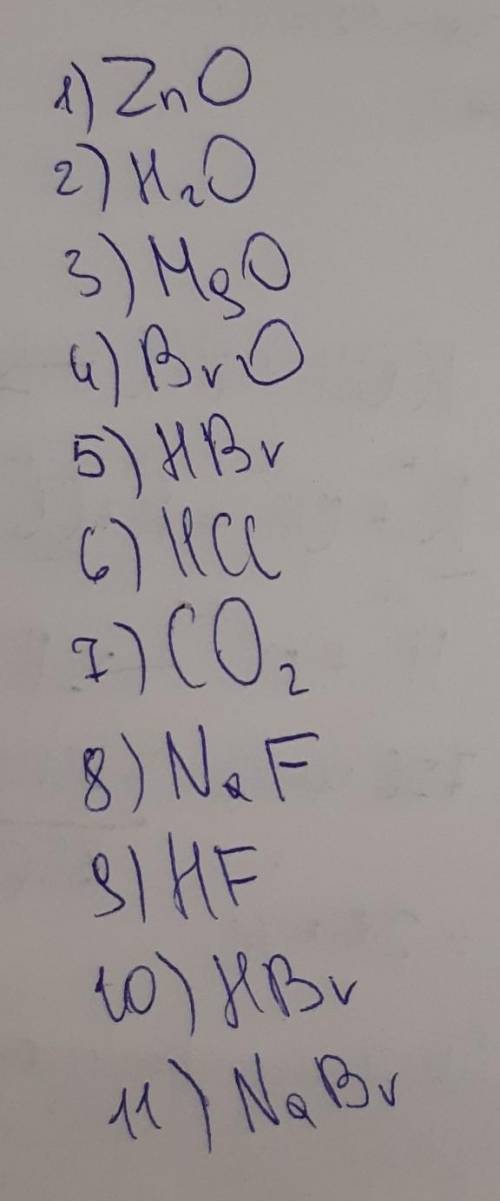 1) ZnO
2) H₂O
3) MgO
4) BrO
5) HBr
6) HCl
7) CO₂
8) NaF
9) HF
10) HBr
11) NaBr